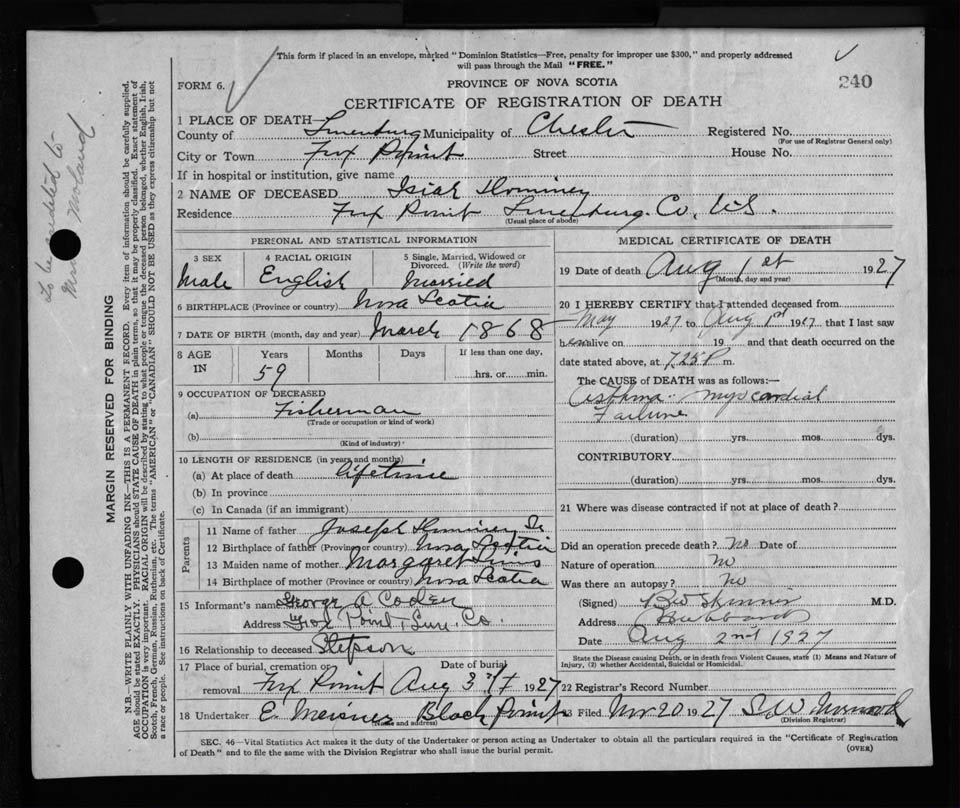 This form if placed in an envelope, marked "Dominion Statistics—Free, penalty for improper use $300," and properly addressed
will pass through the Mail "FREE."
FORM 6.
PROVINCE OF NOVA SCOTIA
240
CERTIFICATE OF REGISTRATION OF DEATH
1 PLACE OF DEATH—
County of Lunenburg Municipality of Chester Registered No.
(For use of Registrar General only)
City or Town Fox Point Street House No.
If in hospital or institution, give name
2 NAME OF DECEASED Isiah
Residence Fox Point Lunenburg. Co, N.S.
(Usual place of abode)
PERSONAL AND STATISTICAL INFORMATION
3 SEX 4 RACIAL ORIGIN 5 Single, Married, Widowed or
Divorced. (Write the word)
Male English Married
6 BIRTHPLACE (Province or country) Nova Scotia
7 DATE OF BIRTH (month, day and year) March 1868
8 AGE IN Years Months Days If less than one day,
59 hrs. or min.
9 OCCUPATION OF DECEASED
(a) Fisherman
(Trade or occupation or kind of work)
(b)
(Kind of industry)
10 LENGTH OF RESIDENCE (in years and months)
(a) At place of death lifetime
(b) In province
(c) In Canada (if an immigrant)
Parents
11 Name of father Joseph
12 Birthplace of father (Province or country) Nova Scotia
13 Maiden name of mother Margaret
14 Birthplace of mother (Province or country) Nova Scotia
15 Informant's name George A
Address Fox Point, Lune. Co.
16 Relationship to deceased Stepson
17 Place of burial, cremation or Date of burial
removal Fox Point Aug 3 1927
18 Undertaker E. Meisner Black Point
(Name and address)
MEDICAL CERTIFICATE OF DEATH
19 Date of death Aug 1st 1927
(Month, day and year)
20 I HEREBY CERTIFY that I attended deceased from
May 1927 to Aug 1st 1927 that I last saw
h alive on 19 and that death occurred on the
date stated above, at 7.25 P m.
The CAUSE of DEATH was as follows:—
Asthma - myocardial
Failure
(duration) yrs. mos. dys.
CONTRIBUTORY
(duration) yrs. mos. dys.
21 Where was disease contracted if not at place of death?
Did an operation precede death? No Date of
Nature of operation No
Was there an autopsy? No
(Signed) Skinner M.D.
Address Hubbards
Date Aug 2nd 1927
State the Disease causing Death, or in death from Violent Causes, state (1) Means and Nature of
Injury, (2) whether Accidental, Suicidal or Homicidal.
22 Registrar's Record Number
23 Filed Nov 20 1927
(Division Registrar)
SEC. 46—Vital Statistics Act makes it the duty of the Undertaker or person acting as Undertaker to obtain all the particulars required in the "Certificate of Registration
of Death" and to file the same with the Division Registrar who shall issue the burial permit.
(OVER)
MARGIN RESERVED FOR BINDING
N.B.—WRITE PLAINLY WITH UNFADING INK—THIS IS A PERMANENT RECORD. Every item of information should be carefully supplied.
AGE should be stated EXACTLY. PHYSICIANS should STATE CAUSE OF DEATH in plain terms, so that it may be properly classified. Exact statement of
OCCUPATION is very important. RACIAL ORIGIN will be described by stating to what people or tongue the deceased person belonged, whether English, Irish,
Scotch, French, German, Russian, Ruthenian, etc. The terms "AMERICAN" or "CANADIAN" SHOULD NOT BE USED as they express citizenship but not
a race or people. See instructions on back of Certificate.
To be credited to